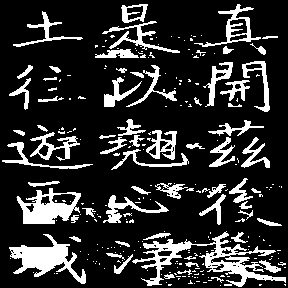 真開茲後學
是以翹心淨
土往遊西域